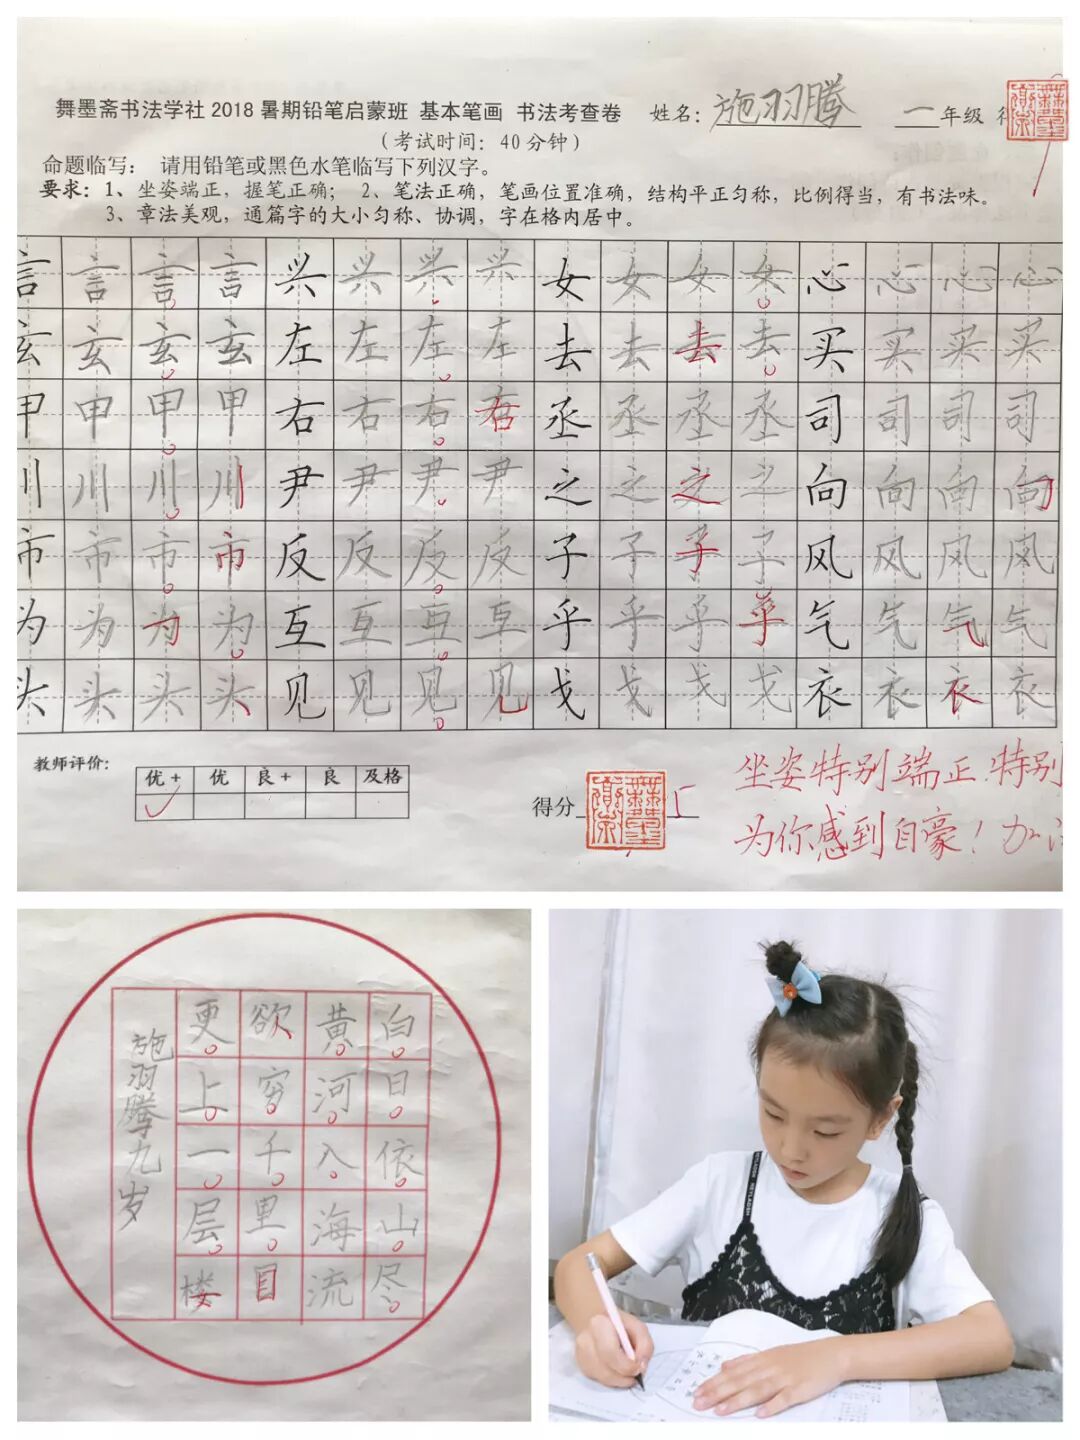 舞墨斋书法学社2018暑期铅笔启蒙班 基本笔画 书法考查卷 姓名：施羽腾 一年级
（考试时间：40分钟）
命题临写： 请用铅笔或黑色水笔临写下列汉字。
要求：1、坐姿端正，握笔正确； 2、笔法正确，笔画位置准确，结构平正匀称，比例得当，有书法味。
3、章法美观，通篇字的大小匀称、协调，字在格内居中。
言言言言兴兴兴兴女女女女心心心心
玄玄玄玄左左左左去去去去买买买买
甲甲甲甲右右右右丞丞丞丞司司司司
川川川川尹尹尹尹之之之之向向向向
市市市市反反反反子子子子风风风风
为为为为互互互互乎乎乎乎气气气气
头头头头见见见见戈戈戈戈衣衣衣衣
教师评价： 优+ 优 良+ 良 及格
得分
坐姿特别端正.特别
为你感到自豪！加
白日依山尽
黄河入海流
欲穷千里目
更上一层楼
施羽腾九岁